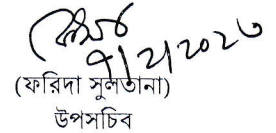 ৭/২/২০২৩
(ফরিদা সুলতানা)
উপসচিব